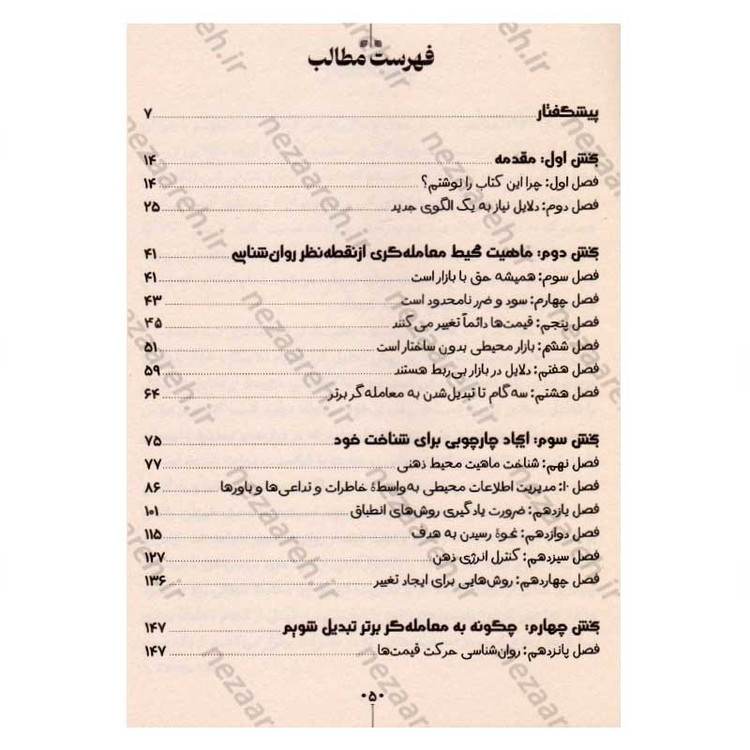 فهرست مطالب
پیشگفتار ۷
بخش اول: مقدمه ۱۴
فصل اول: چرا این کتاب را نوشتم؟ ۱۴
فصل دوم: دلایل نیاز به یک الگوی جدید ۲۵
بخش دوم: ماهیت محیط معامله‌گری از نقطه‌نظر روان‌شناسی ۴۱
فصل سوم: همیشه حق با بازار است ۴۱
فصل چهارم: سود و ضرر نامحدود است ۴۳
فصل پنجم: قیمت‌ها دائماً تغییر می‌کنند ۴۵
فصل ششم: بازار محیطی بدون ساختار است ۵۱
فصل هفتم: دلایل در بازار بی‌ربط هستند ۵۹
فصل هشتم: سه گام تا تبدیل‌شدن به معامله‌گر برتر ۶۴
بخش سوم: ایجاد چارچوبی برای شناخت خود ۷۵
فصل نهم: شناخت ماهیت محیط ذهنی ۷۷
فصل ۱۰: مدیریت اطلاعات محیطی به‌واسطهٔ خاطرات و تداعی‌ها و باورها ۸۶
فصل یازدهم: ضرورت یادگیری روش‌های انطباق ۱۰۱
فصل دوازدهم: نحوهٔ رسیدن به هدف ۱۱۵
فصل سیزدهم: کنترل انرژی ذهن ۱۲۷
فصل چهاردهم: روش‌هایی برای ایجاد تغییر ۱۳۶
بخش چهارم: چگونه به معامله‌گر برتر تبدیل شویم ۱۴۷
فصل پانزدهم: روان‌شناسی حرکت قیمت‌ها ۱۴۷
۵
nezaareh.ir